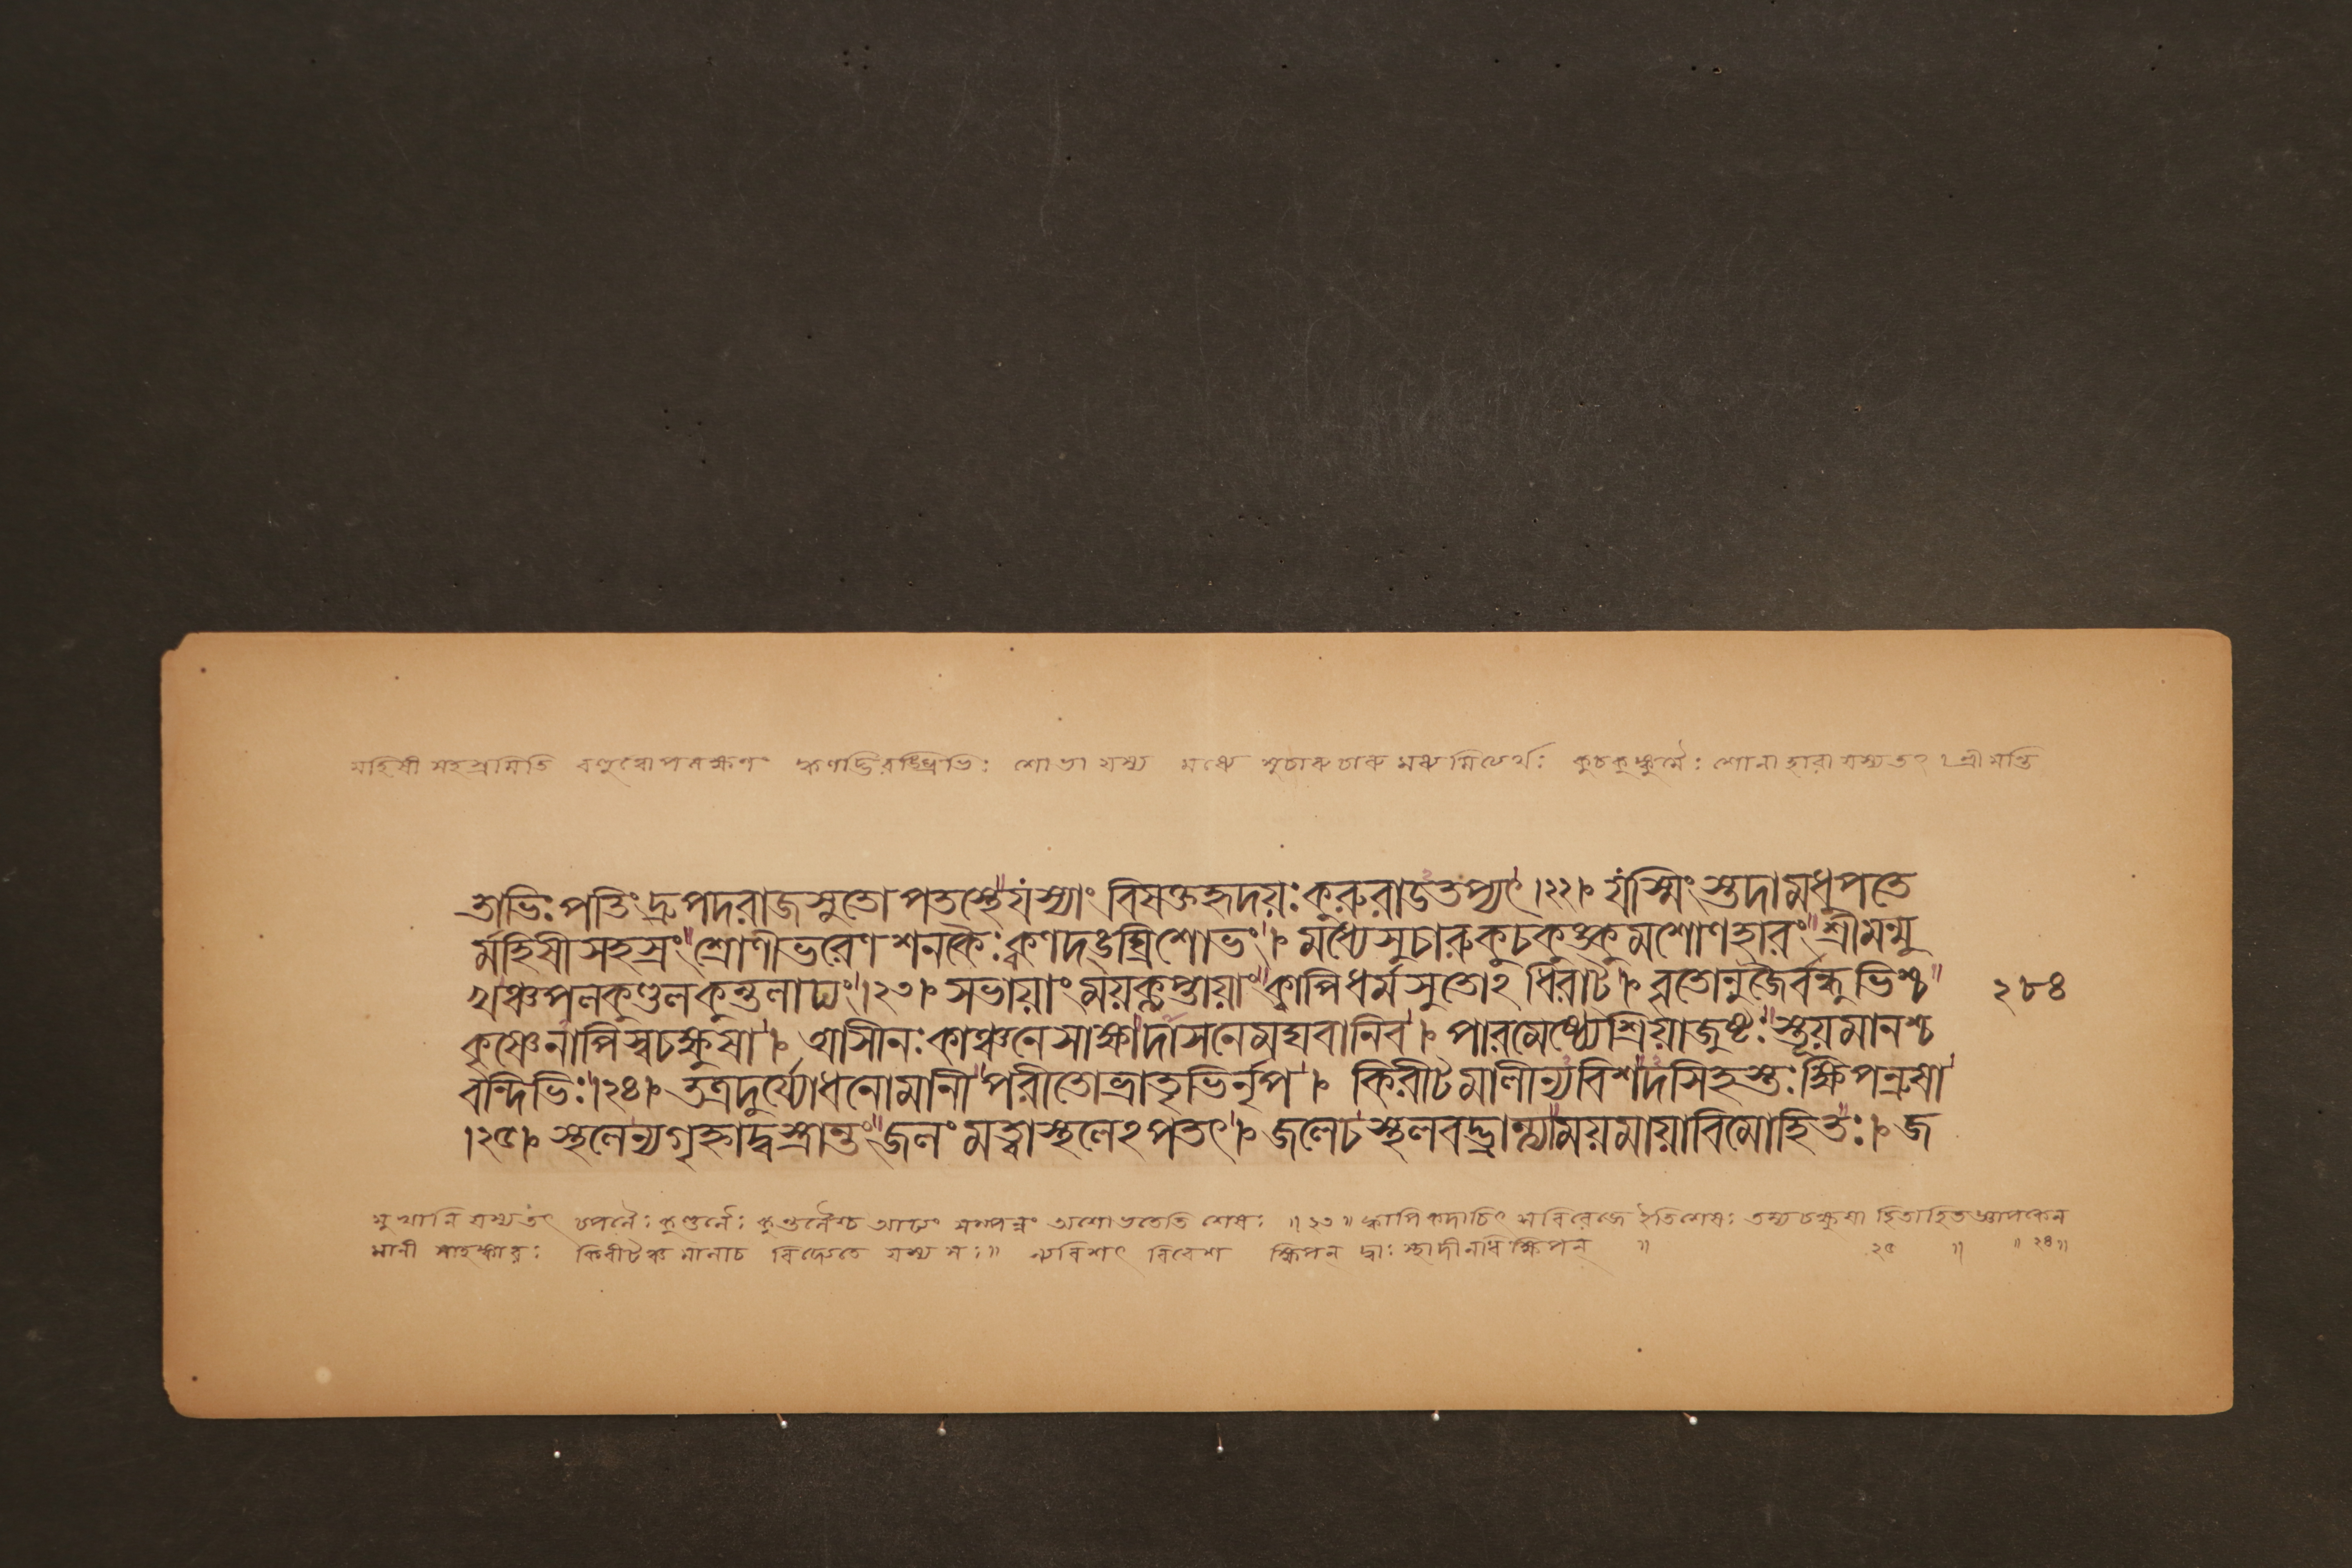 মহিষী সহস্রমিতি বপুষোপলক্ষণং ক্বণদ্ভিরঙ্ঘ্রিভিঃ শোভা যস্য মধ্যে সুচারু চারু মধ্যমিত্যর্থঃ কুচকুঙ্কুমৈঃ শোণাহারা যস্য তৎ । শ্রীমন্তি
তাভিঃ পতিং দ্রুপদরাজসুতোপতস্থে যস্যাং বিষক্তহৃদয়ঃ কুরুরাডতপ্যৎ ।২২। যস্মিং স্তদামধুপতে
র্মহিষীসহস্রং শ্রোণীভরেণ শনকৈঃ ক্বণদঙঘ্রিশোভং । মধ্যেসুচারুকুচকুঙ্কুমশোণহারং শ্রীমন্মু
খঞ্চপলকুণ্ডলকুন্তলাঢ্যং ।২৩। সভায়াং ময়কৢপ্তায়াং ক্বাপি ধর্মসুতোঽ ধিরাট । বৃতোনুজৈর্বন্ধুভিশ্চ
কৃষ্ণেনাপি স্বচক্ষুষা । আসীনঃ কাঞ্চনে সাক্ষাদাসনে মঘবানিব । পারমেষ্ঠ্যেশ্রিয়াজুষ্টঃ স্তূয়মানশ্চ
বন্দিভিঃ ।২৪। তত্রদুর্য্যোধনোমানী পরীতোভ্রাতৃভির্নৃপ । কিরীটমালীন্যবিশদসিহস্তঃ ক্ষিপন্রুষা
।২৫। স্থলেন্যগৃহ্নাদ্বস্ত্রান্তং জলং মত্বাস্থলেঽপতৎ । জলেচস্থলবদ্ভ্রান্ত্যাময়মায়াবিমোহিতঃ । জ
২৮৪
মুখানি যস্য তৎ চপলৈঃ কুণ্ডলৈঃ কুন্তলৈশ্চ আঢ্যং সম্পন্নং অশোভতেতি শেষঃ ॥ ২৩ ॥ ক্বাপি কদাচিৎ স বিরেজে ইতিশেষঃ তস্য চক্ষুষা হিতাহিতজ্ঞাপকেন
মানী সাহঙ্কারঃ কিরীটঞ্চ মালাচ বিদ্যেতে যস্য সঃ ॥ ন্যবিশৎ বিবেশ ক্ষিপন দ্বাঃ স্থাদীনধিক্ষিপন্ ॥ ২৫ ॥ ॥ ২৪ ॥